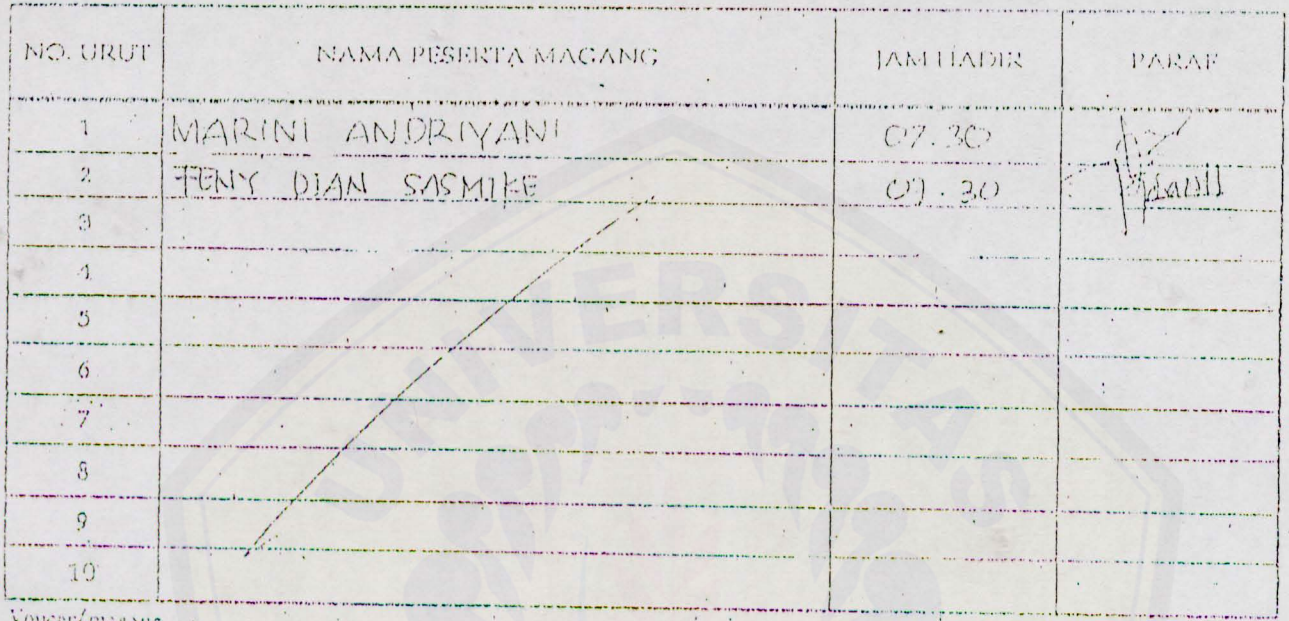 NO. URUT NAMA PESERTA MAGANG JAM HADIR PARAF
1 MARINI ANDRIYANI 07.30
2 FENY DIAN SASMIKE 07.30
3
4
5
6
7
8
9
10
UNIVERSITAS